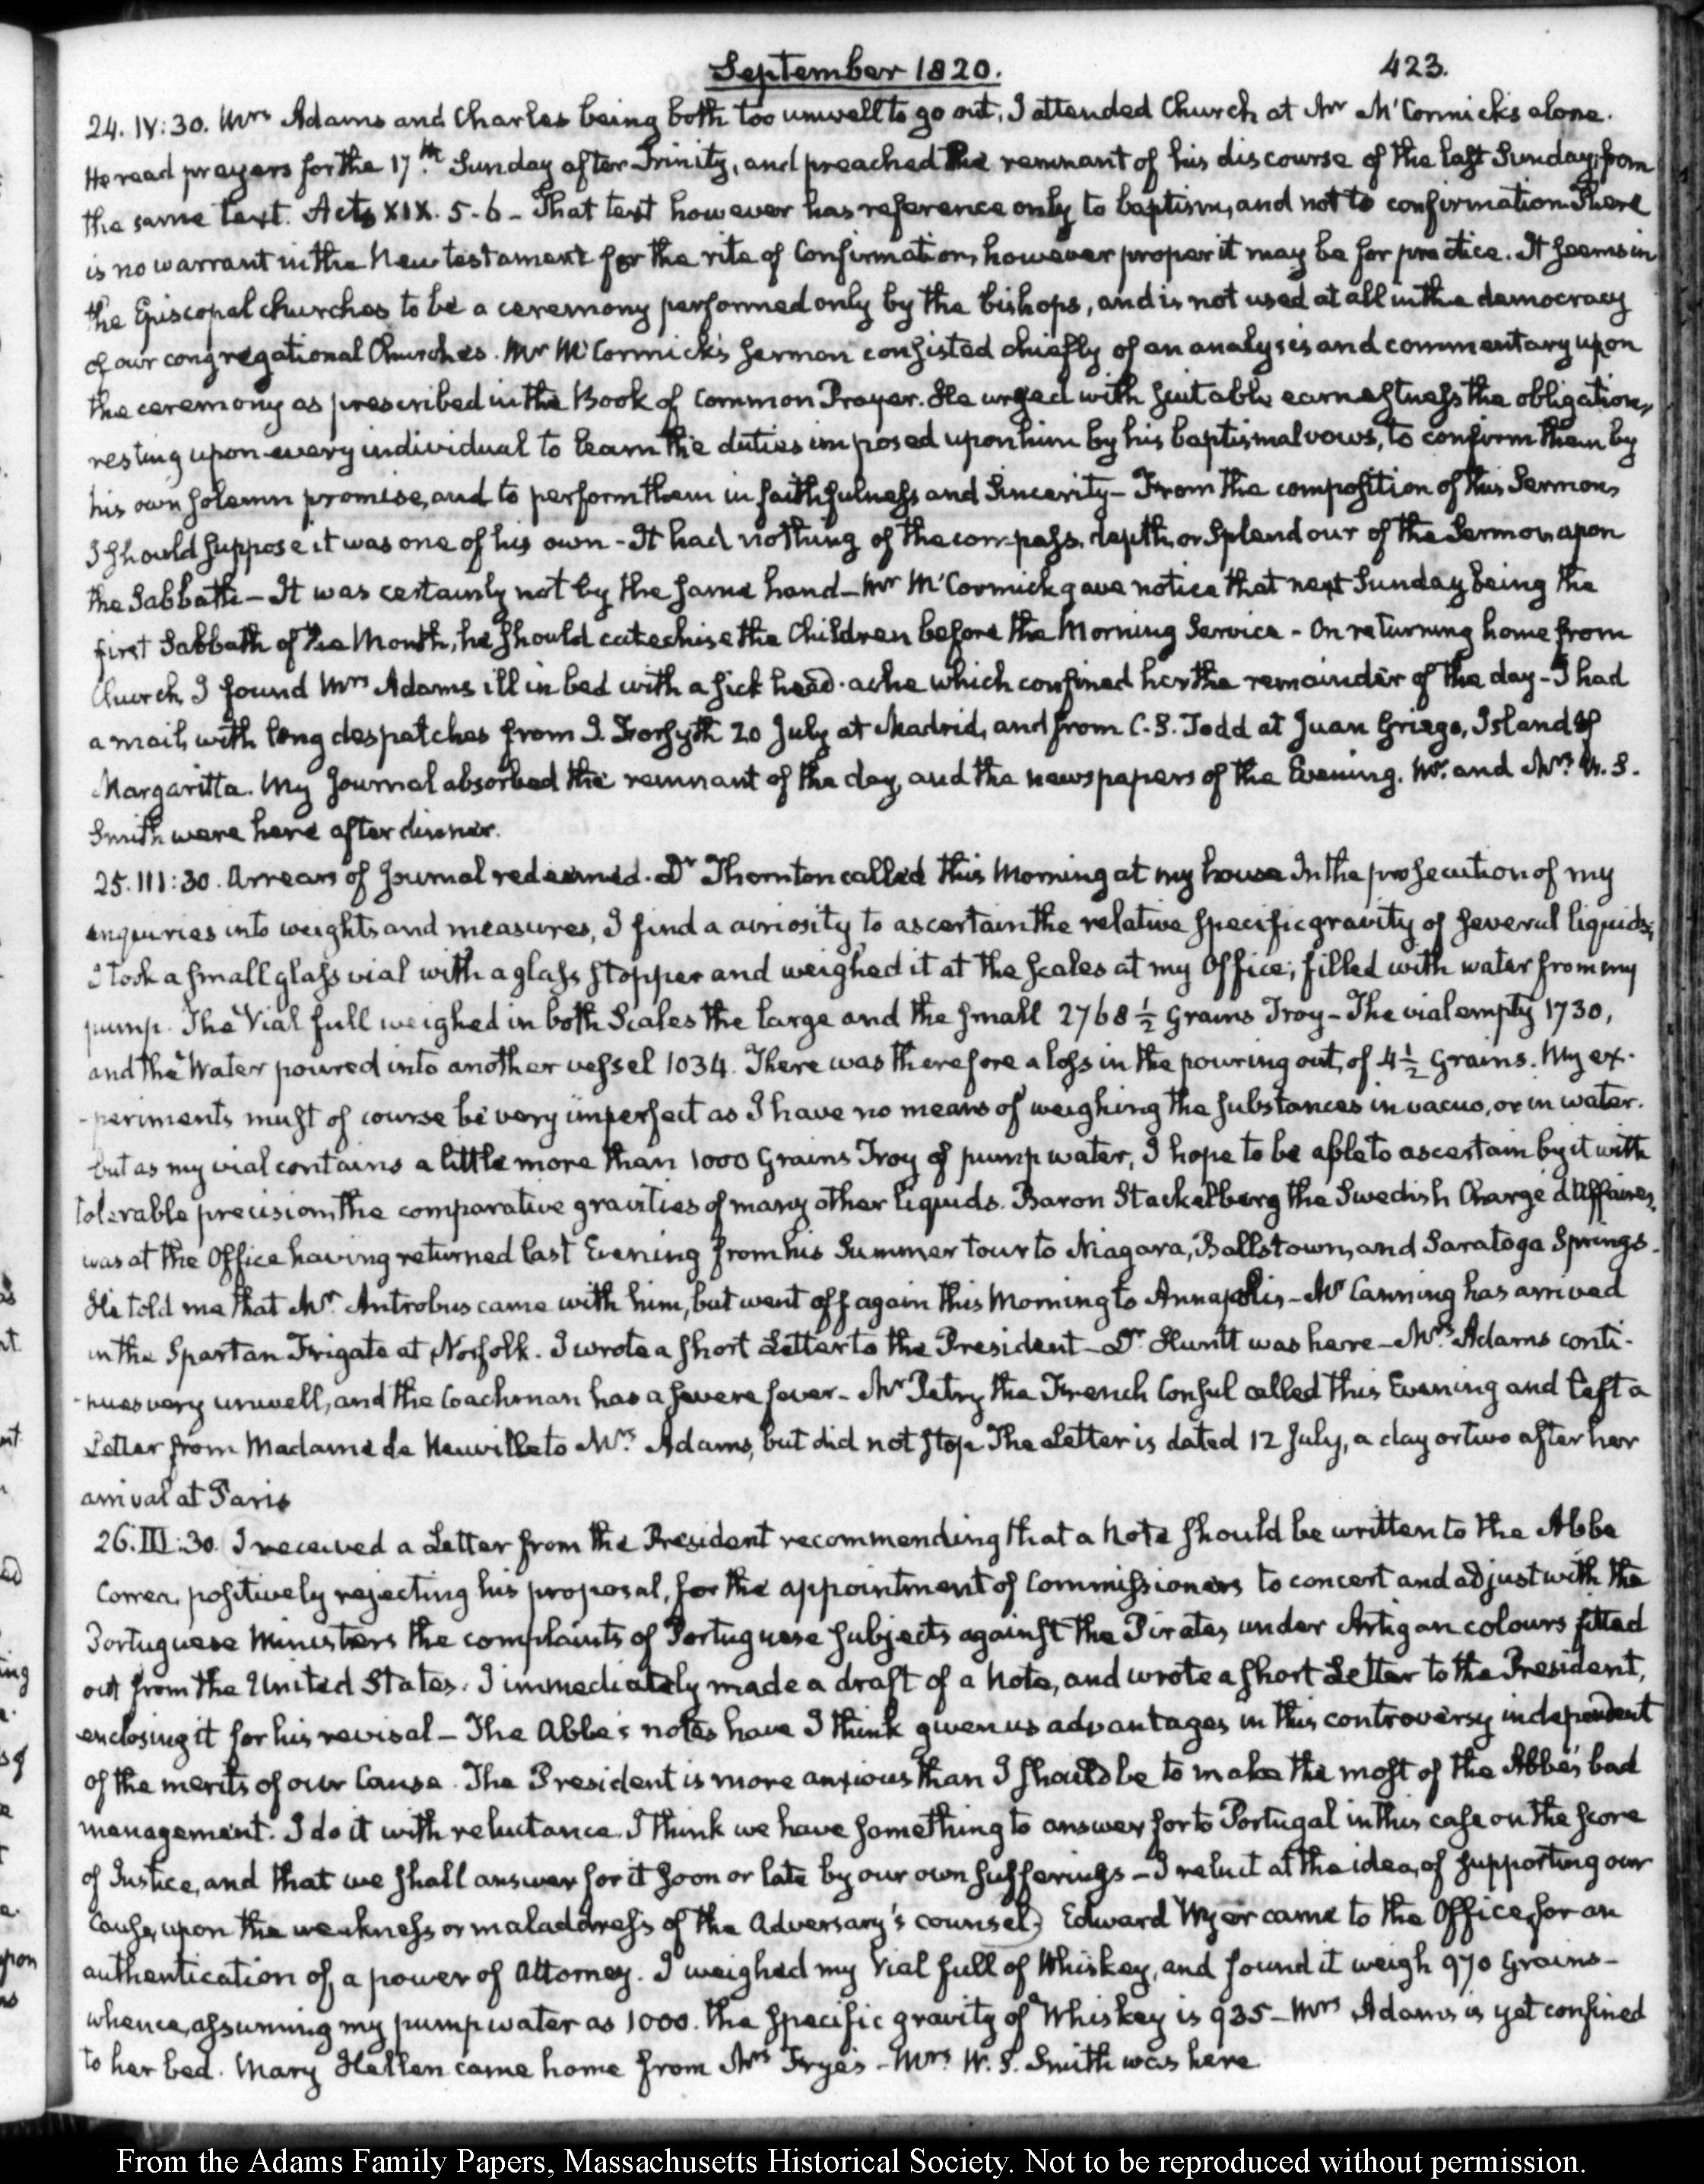 September 1820.
423.
24. IV:30. Mrs Adams and Charles being both too unwell to go out, I attended Church at Mr McCormick's alone.
He read prayers for the 17th Sunday after Trinity, and preached the remnant of his discourse of the last Sunday, from
the same text. Acts XIX. 5-6 - That text however has reference only to baptism, and not to confirmation. There
is no warrant in the New testament for the rite of Confirmation, however proper it may be for practice. It seems in
the Episcopal churches to be a ceremony performed only by the bishops, and is not used at all in the democracy
of our congregational Churches. Mr McCormick's sermon consisted chiefly of an analysis and commentary upon
the ceremony as prescribed in the Book of Common Prayer. He urged with suitable earnestness the obligation,
resting upon every individual to learn the duties imposed upon him by his baptismal vows, to confirm them by
his own solemn promise, and to perform them in faithfulness and Sincerity - From the composition of this Sermon,
I should suppose it was one of his own - It had nothing of the compass, depth, or Splendour of the Sermon upon
the Sabbath - It was certainly not by the same hand - Mr McCormick gave notice that next Sunday being the
first Sabbath of the Month, he should catechise the Children before the Morning Service - On returning home from
Church, I found Mrs Adams ill in bed with a sick head-ache which confined her the remainder of the day - I had
a mail, with long despatches from J. Forsyth 20 July at Madrid, and from C. S. Todd at Juan Griego, Island of
Margaritta. My Journal absorbed the remnant of the day, and the newspapers of the Evening. Mr. and Mrs. W. S.
Smith were here after dinner.
25. III:30. Arrears of Journal redeemed. Dr Thornton called this Morning at my house In the prosecution of my
enquiries into weights and measures, I find a curiosity to ascertain the relative specific gravity of several liquids;
I took a small glass vial with a glass stopper and weighed it at the scales at my Office; filled with water from my
pump. The Vial full weighed in both Scales the large and the small 2768 ½ Grains Troy - The vial empty 1730,
and the Water poured into another vessel 1034. There was therefore a loss in the pouring out, of 4 ½ Grains. My ex-
-periments must of course be very imperfect as I have no means of weighing the substances in vacuo, or in water.
but as my vial contains a little more than 1000 Grains Troy of pump water, I hope to be able to ascertain by it with
tolerable precision, the comparative gravities of many other liquids. Baron Stackelberg the Swedish Chargé d'Affaires,
was at the Office having returned last Evening from his Summer tour to Niagara, Ballstown, and Saratoga Springs.
He told me that Mr. Antrobus came with him, but went off again this Morning to Annapolis - Mr Canning has arrived
in the Spartan Frigate at Norfolk. I wrote a short Letter to the President - Dr. Huntt was here - Mrs. Adams conti-
-nues very unwell, and the Coachman has a severe fever - Mr Petry the French Consul called this Evening and left a
Letter from Madame de Neuville to Mrs. Adams, but did not stop. The Letter is dated 12 July, a day or two after her
arrival at Paris
26. III:30. I received a Letter from the President recommending that a Note should be written to the Abbe
Correa, positively rejecting his proposal, for the appointment of Commissioners to concert and adjust with the
Portuguese Ministers the complaints of Portuguese subjects against the Pirates under Artigan colours fitted
out from the United States. I immediately made a draft of a Note, and wrote a short Letter to the President,
enclosing it for his revisal - The Abbe's notes have I think given us advantages in this controversy independent
of the merits of our Cause. The President is more anxious than I should be to make the most of the Abbe's bad
management. I do it with reluctance. I think we have something to answer for to Portugal in this case on the score
of Justice, and that we shall answer for it soon or late by our own sufferings - I reluct at the idea, of supporting our
Cause, upon the weakness or maladdress of the Adversary's counsel. Edward Wyer came to the Office, for an
authentication of, a power of Attorney. I weighed my Vial full of Whiskey, and found it weigh 970 Grains -
whence, assuming my pump water as 1000. the specific gravity of Whiskey is 935 - Mrs Adams is yet confined
to her bed. Mary Hellen came home from Mrs Frye's - Mrs. W. S. Smith was here
From the Adams Family Papers, Massachusetts Historical Society. Not to be reproduced without permission.